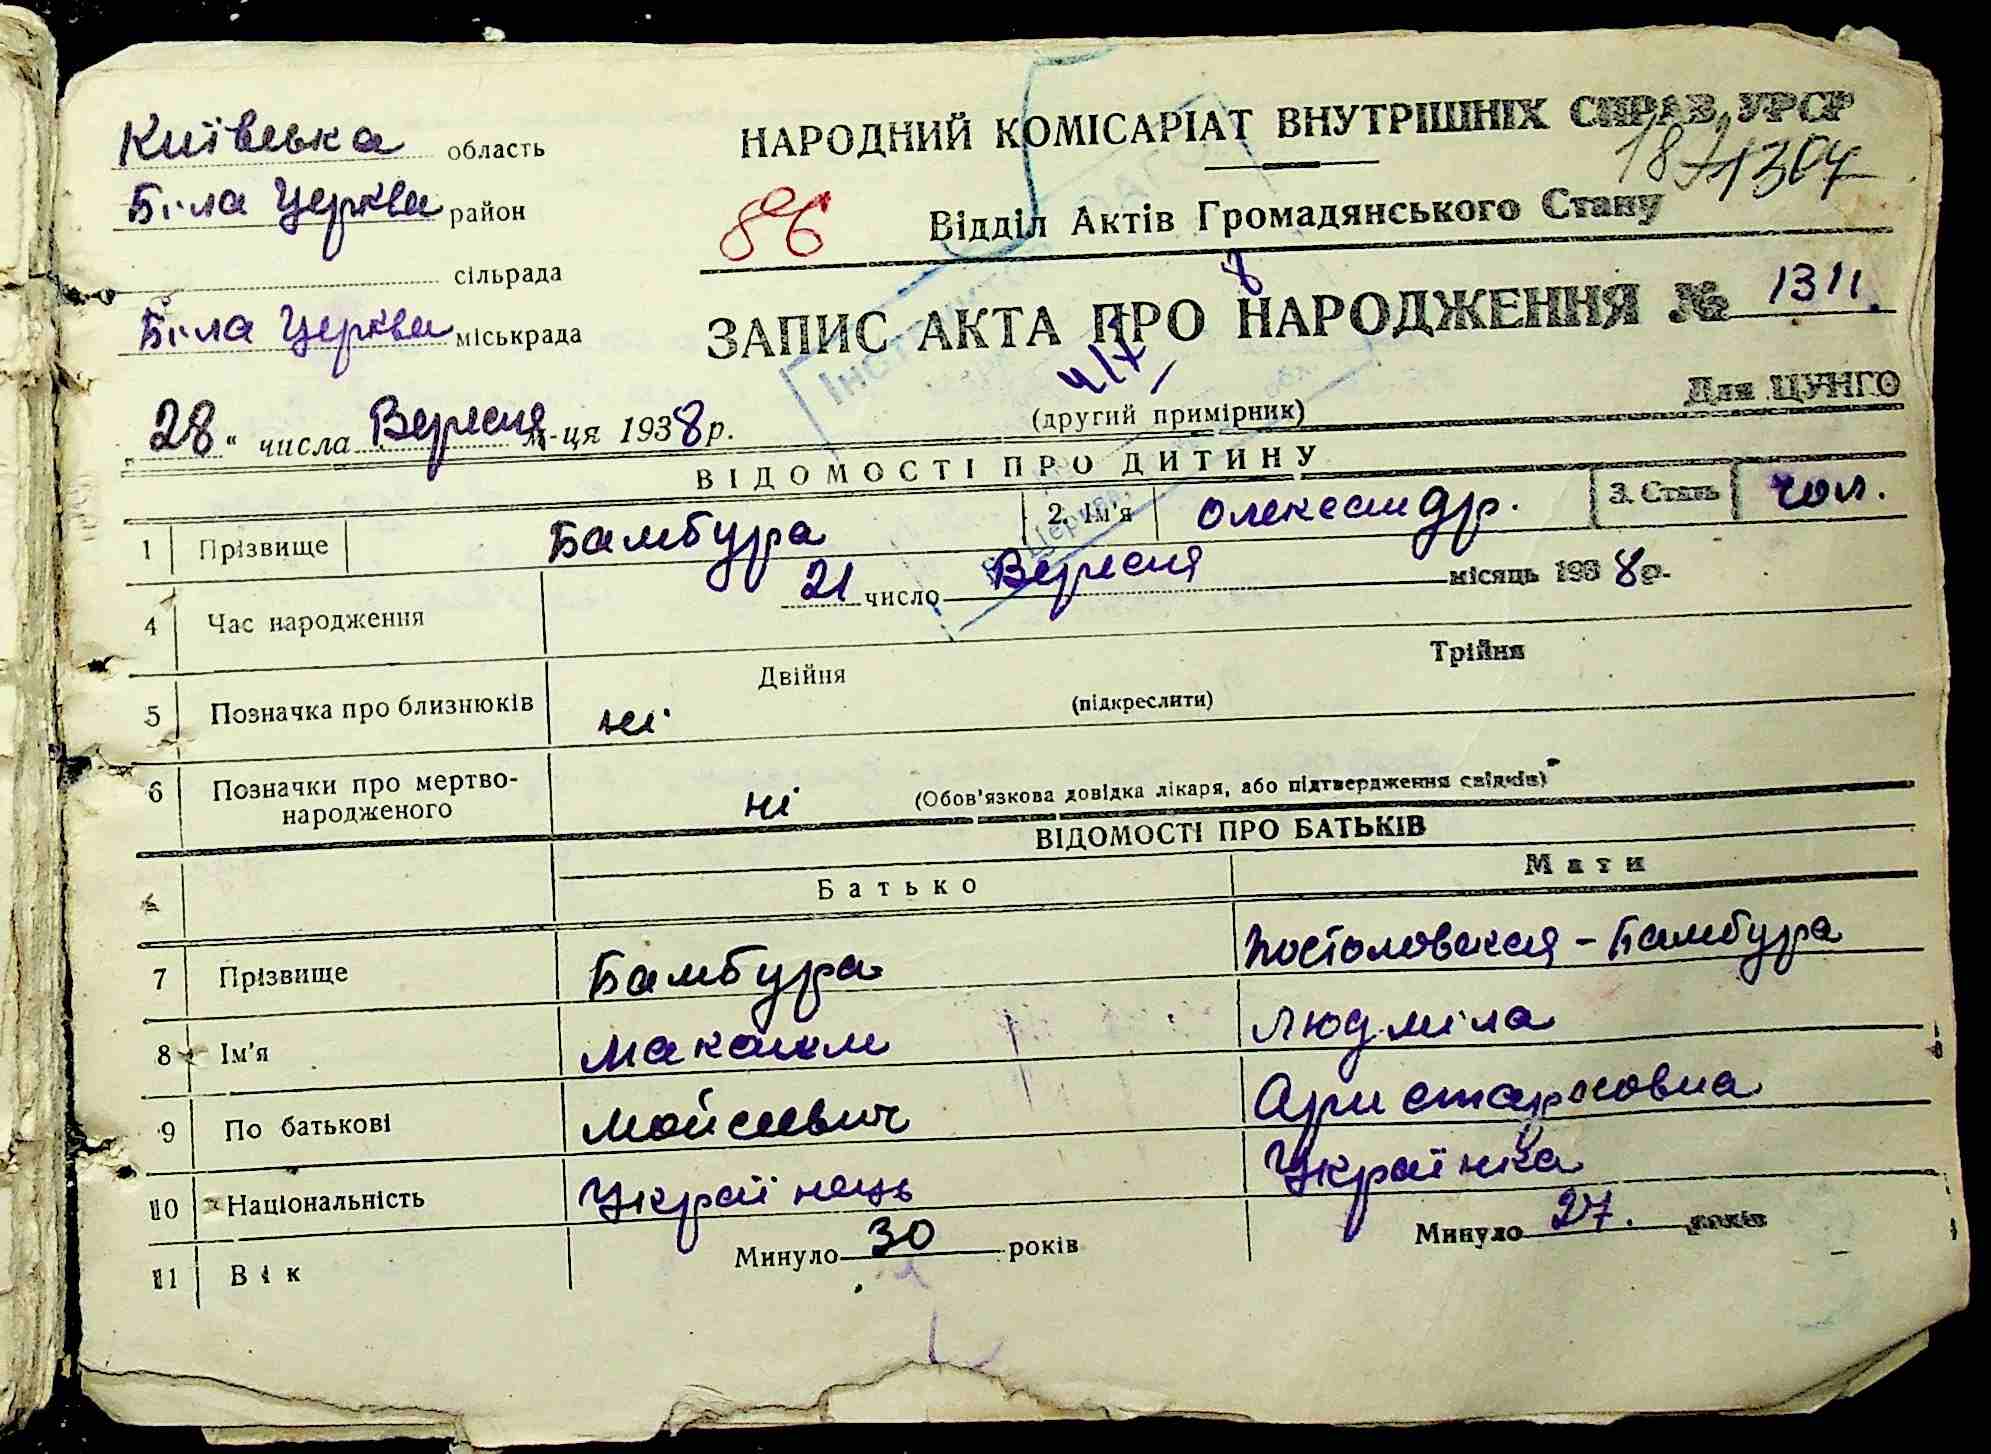 Київська область
НАРОДНИЙ КОМІСАРІАТ ВНУТРІШНІХ СПРАВ УРСР
Біла Церква район
86
Відділ Актів Громадянського Стану
1304
сільрада
Біла Церква міськрада
ЗАПИС АКТА ПРО НАРОДЖЕННЯ № 1311.
„28“ числа Вересня м-ця 1938 р.
(другий примірник)
Для ЦУНГО
ВІДОМОСТІ ПРО ДИТИНУ
1 Прізвище Бамбура 2. Ім'я Олександр. 3. Стать чол.
4 Час народження 21 число Вересня місяць 1938 р.
5 Позначка про близнюків ні Двійня (підкреслити) Трійня
6 Позначки про мертво-
народженого ні (Обов'язкова довідка лікаря, або підтвердження свідків)
ВІДОМОСТІ ПРО БАТЬКІВ
Батько Мати
7 Прізвище Бамбура Постоловская - Бамбура
8 Ім'я Максим Людміла
9 По батькові Мойсеевич Аристарховна
10 Національність Українець Українка
11 Вік Минуло 30 років Минуло 27. років